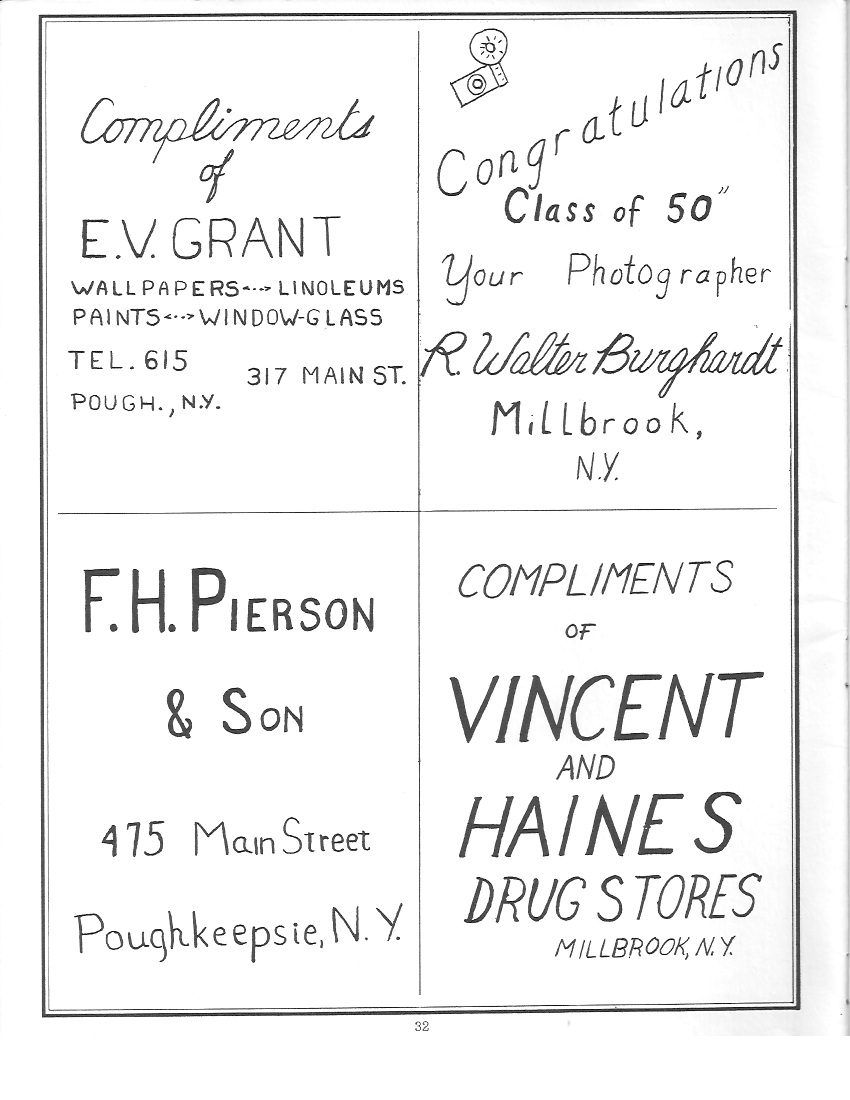 Compliments
of
E.V. GRANT
WALLPAPERS<-->LINOLEUMS
PAINTS<-->WINDOW-GLASS
TEL. 615
317 MAIN ST.
POUGH., N.Y.
Congratulations
Class of 50"
Your Photographer
R. Walter Burghardt
Millbrook,
N.Y.
F.H. PIERSON
& SON
475 Main Street
Poughkeepsie, N.Y.
COMPLIMENTS
OF
VINCENT
AND
HAINES
DRUG STORES
MILLBROOK, N.Y.
32